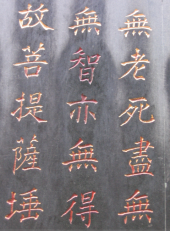 無老死盡無
無智亦無得
故菩提薩埵